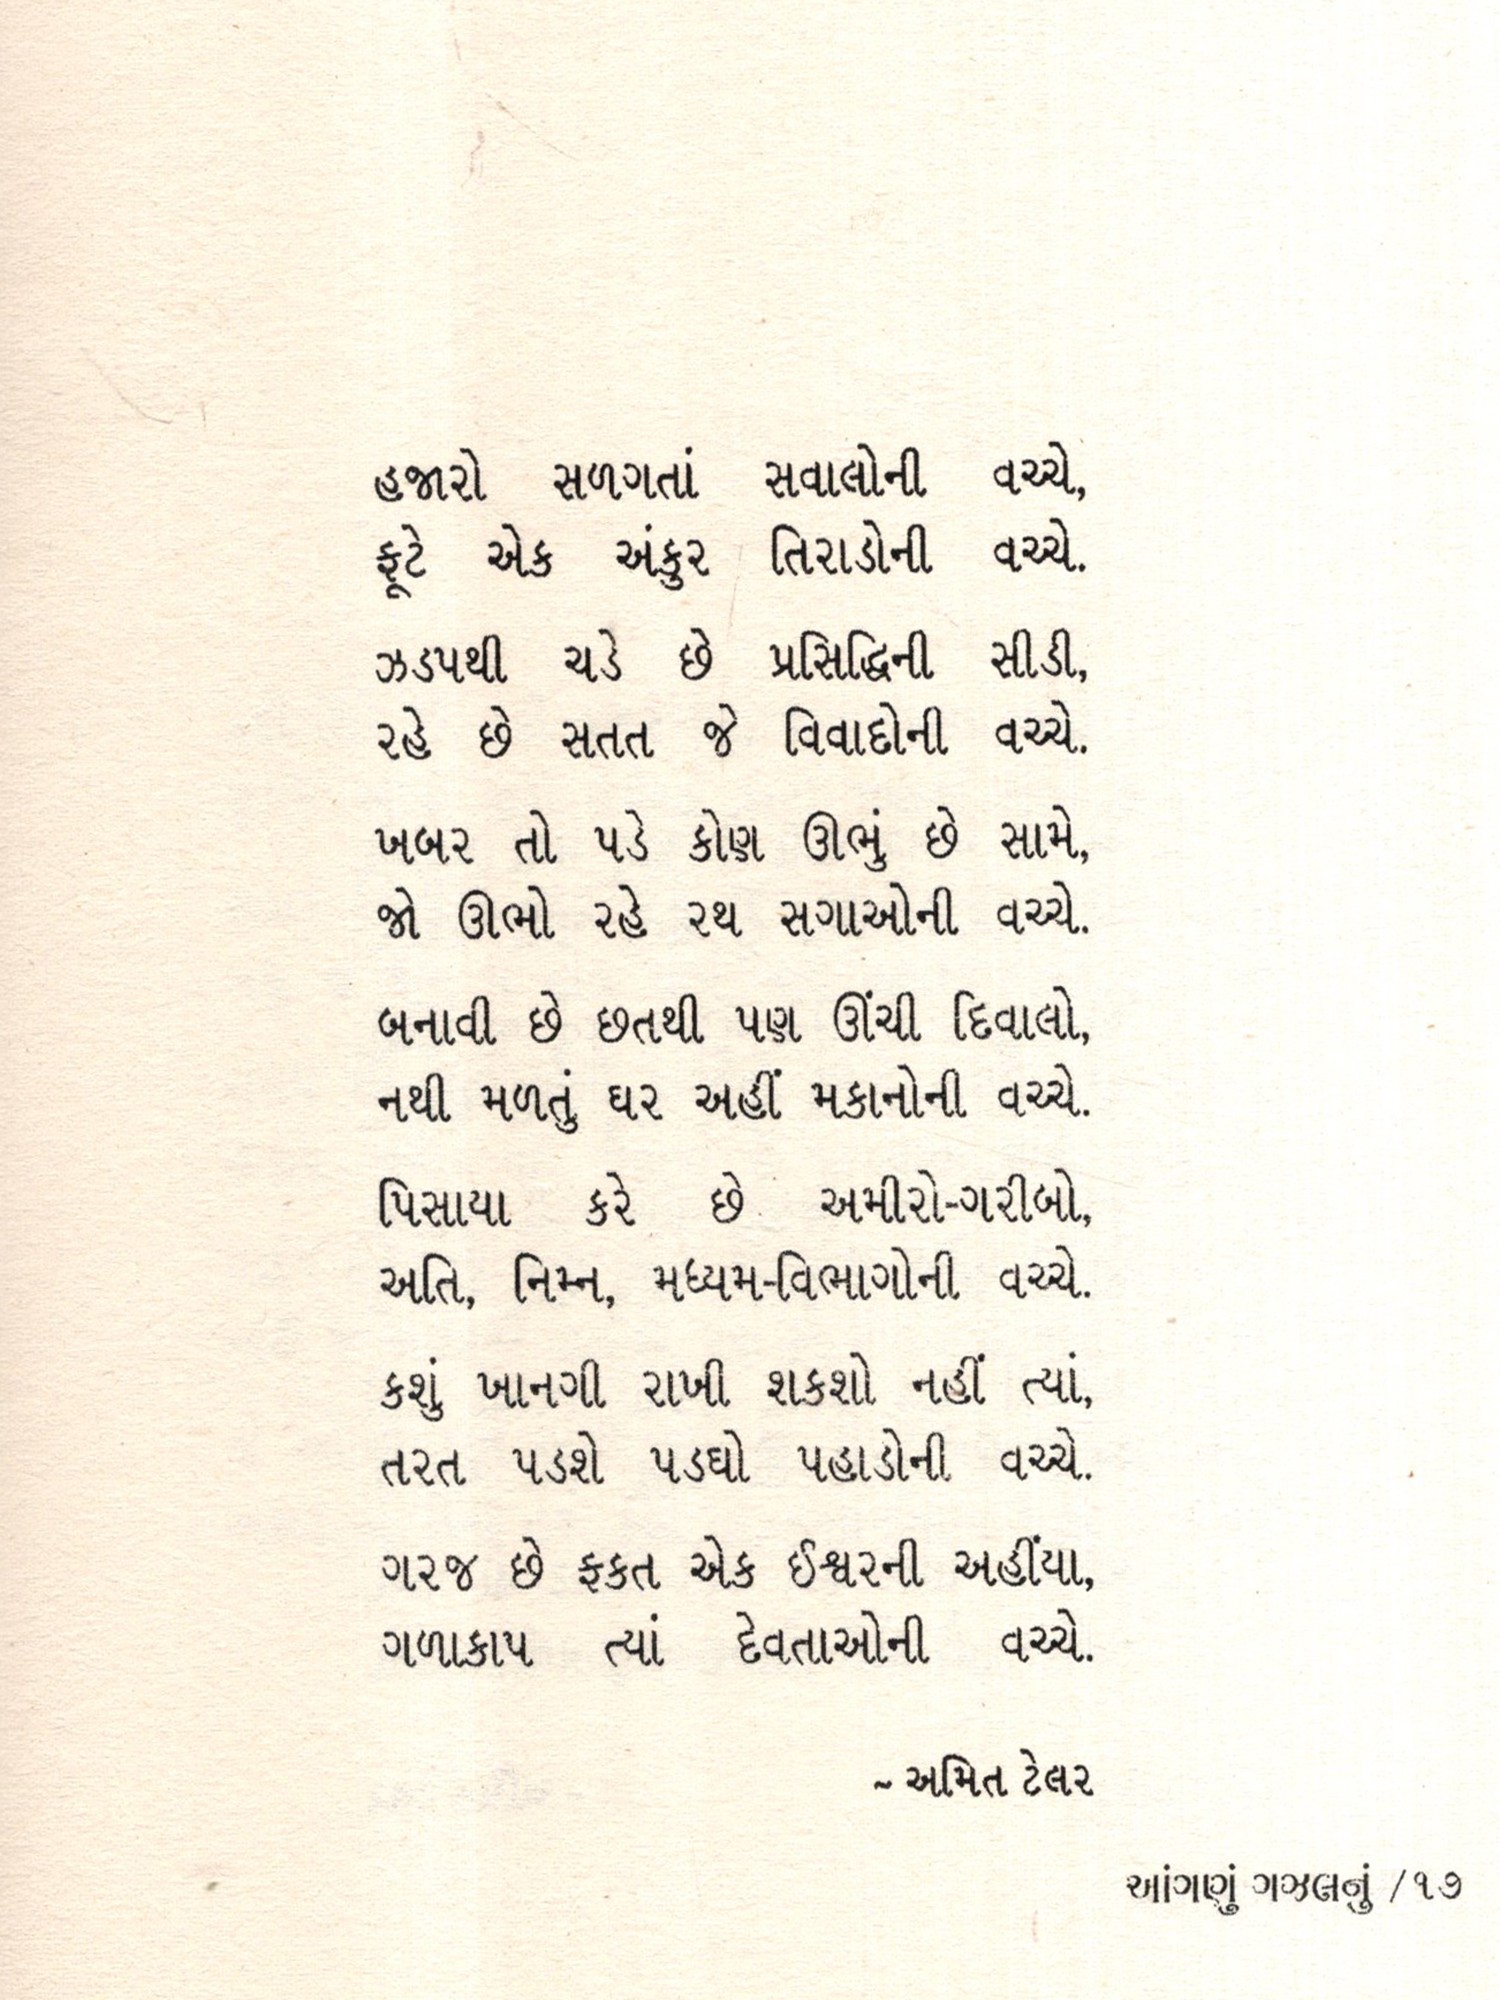 હજારો સળગતાં સવાલોની વચ્ચે,
ફૂટે એક અંકુર તિરાડોની વચ્ચે.
ઝડપથી ચડે છે પ્રસિદ્ધિની સીડી,
રહે છે સતત જે વિવાદોની વચ્ચે.
ખબર તો પડે કોણ ઊભું છે સામે,
જો ઊભો રહે રથ સગાઓની વચ્ચે.
બનાવી છે છતથી પણ ઊંચી દિવાલો,
નથી મળતું ઘર અહીં મકાનોની વચ્ચે.
પિસાયા કરે છે અમીરો-ગરીબો,
અતિ, નિમ્ન, મધ્યમ-વિભાગોની વચ્ચે.
કશું ખાનગી રાખી શકશો નહીં ત્યાં,
તરત પડશે પડઘો પહાડોની વચ્ચે.
ગરજ છે ફકત એક ઈશ્વરની અહીંયા,
ગળાકાપ ત્યાં દેવતાઓની વચ્ચે.
~ અમિત ટેલર
આંગણું ગઝલનું / ૧૭